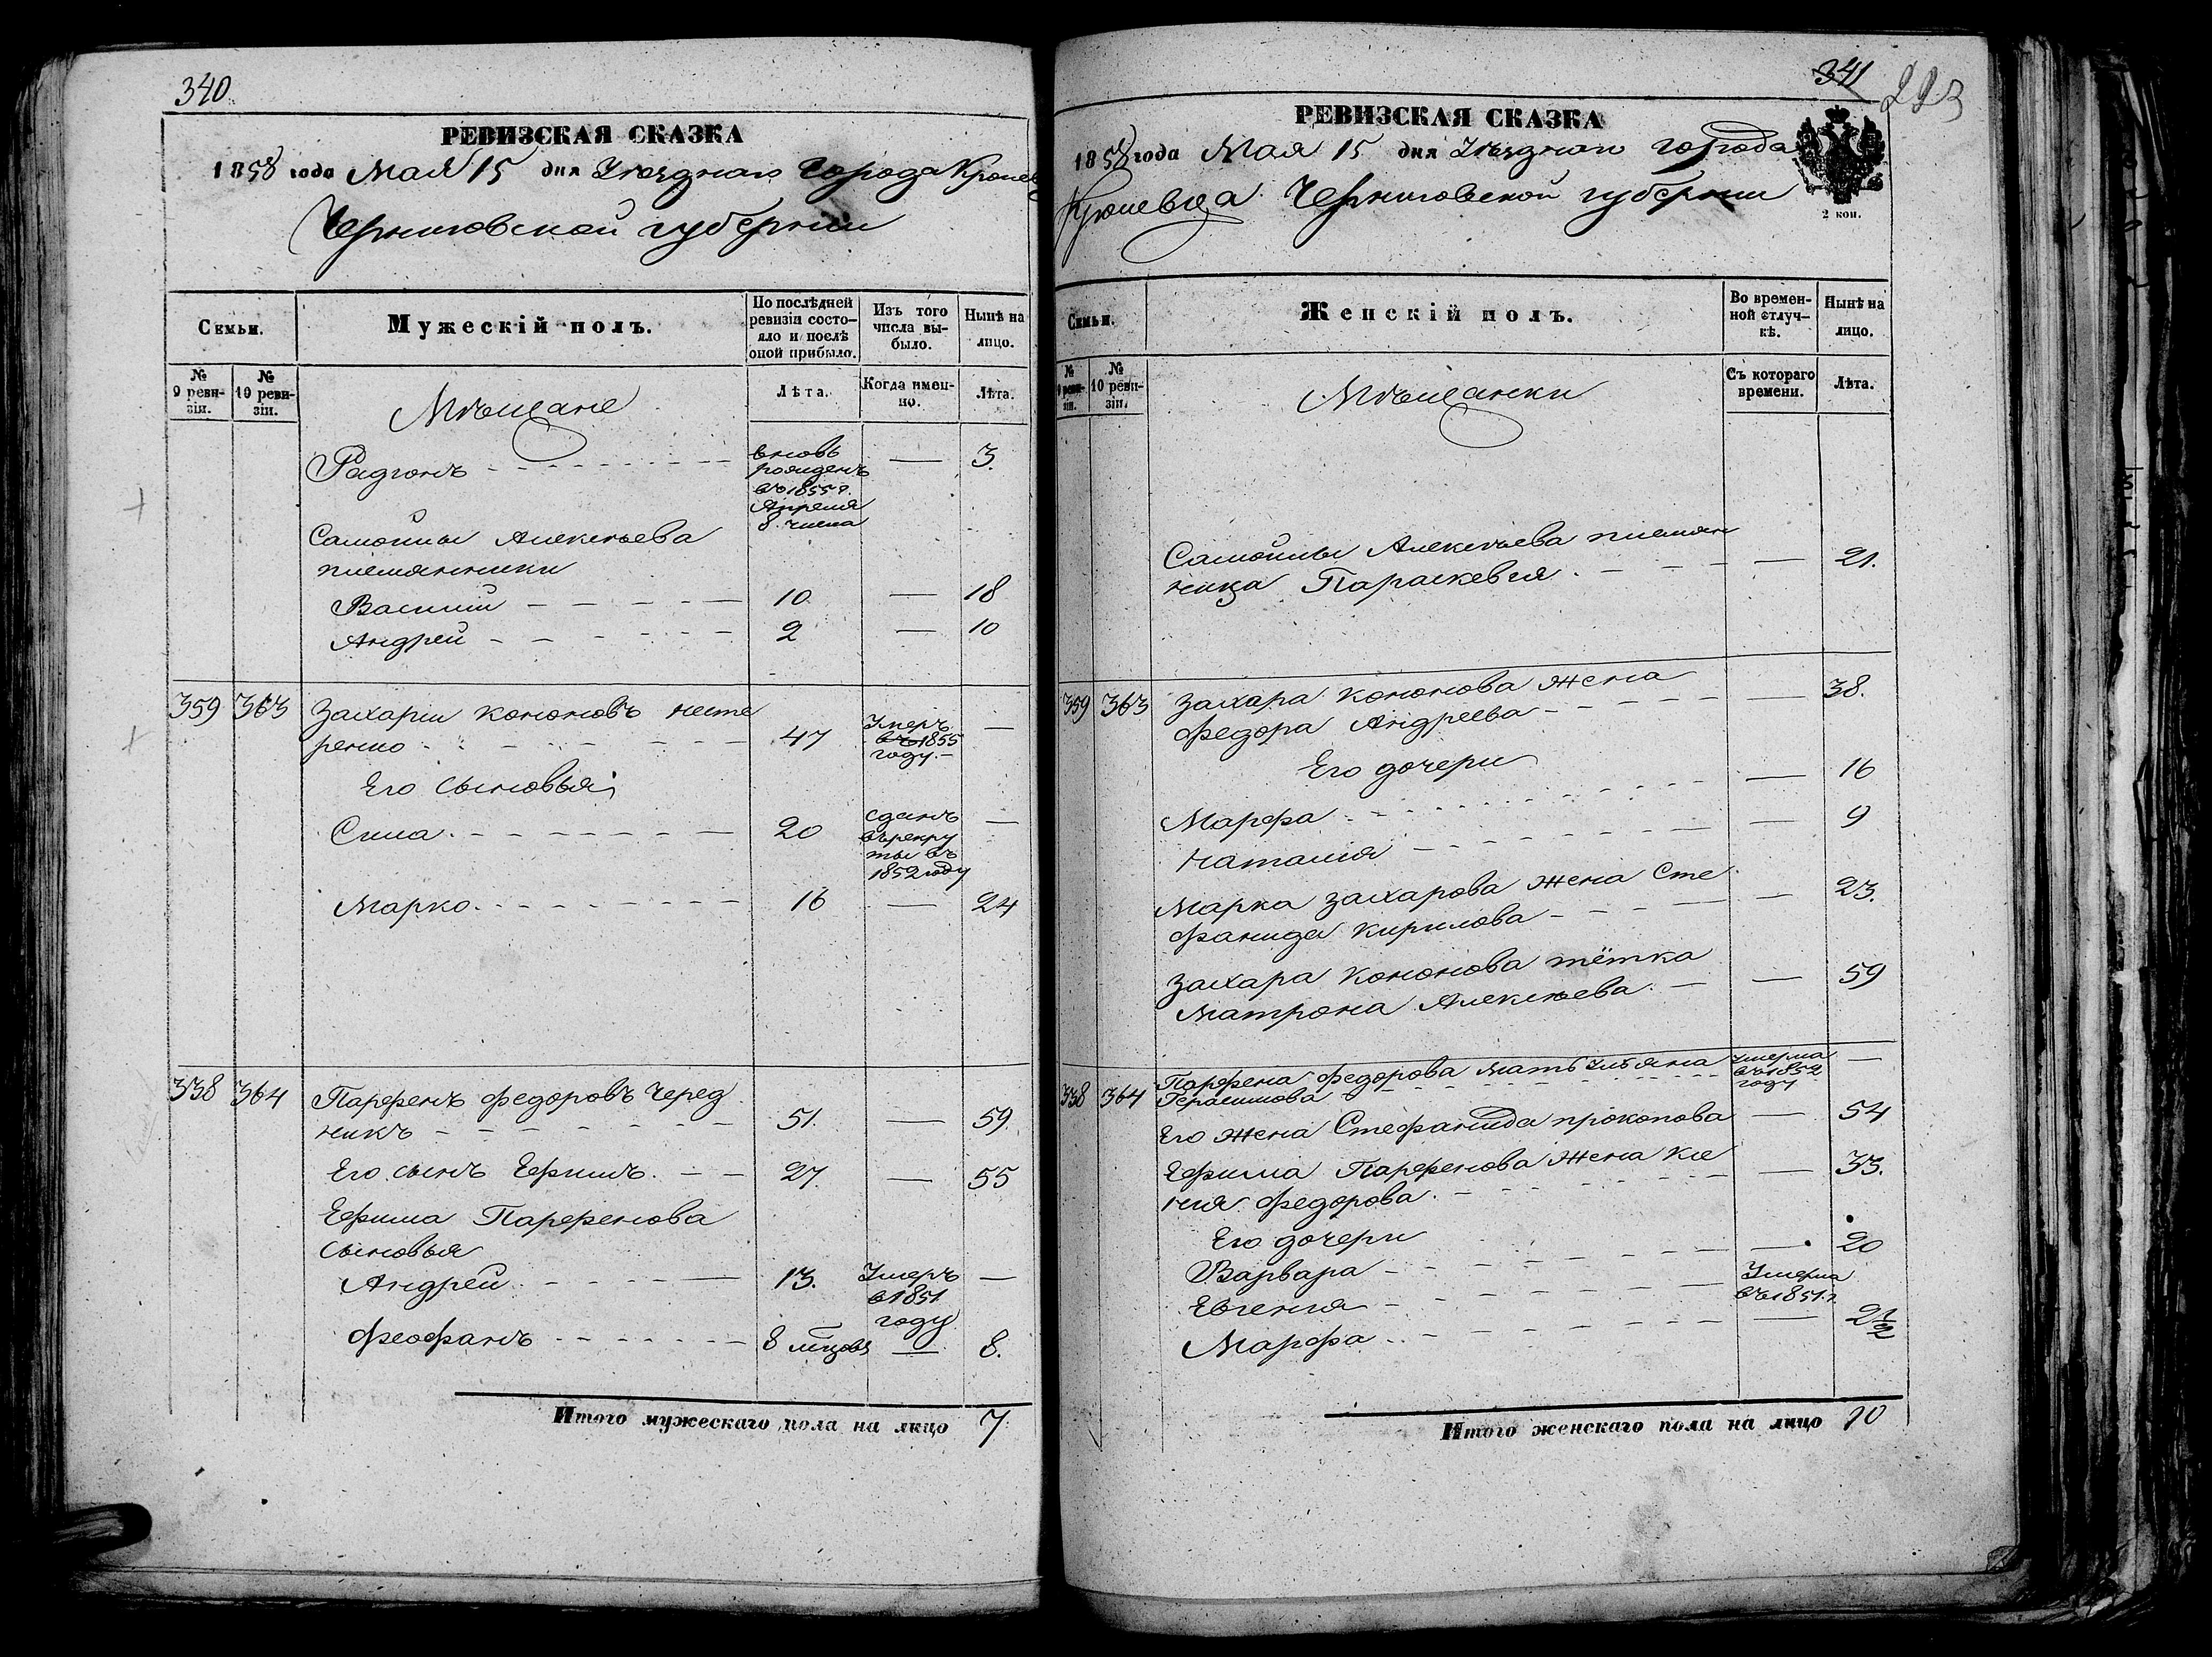 340
РЕВИЗСКАЯ СКАЗКА
1858 года Мая 15 дня Уѣзднаго города Кролев
Черниговской губернии
Семьи.
Мужескій полъ.
По послѣдней ревизіи состояло и послѣ оной прибыло.
Изъ того числа выбыло.
Нынѣ на лицо.
№ 9 ревизіи.
№ 10 ревизіи.
Мѣщане
Лѣта.
Когда именно.
Лѣта.
Радионъ — 3.
вновь
рожденъ
въ 1855 г.
Апреля
8. числа
Самойлы Алексѣева
племянники
Василий 10 — 18
Андрей 2 — 10
359 363 Захарий Кононовъ Несте
ренко 47 —
Умеръ
въ 1855
году.
Его сыновья;
Сила 20 —
сданъ
въ рекру
ты въ
1852 году
Марко 16 — 24
338 364 Парфенъ Федоровъ Черед
никъ 51. — 59.
Его сынъ Ефимъ. 27. — 55
Ефима Парфенова
сыновья
Андрей 13. —
Умеръ
в 1851
году
Феофанъ 8 мѣсцовъ — 8.
Итого мужескаго пола на лицо 7
341
223
РЕВИЗСКАЯ СКАЗКА
1858 года Мая 15 дня Уѣзднаго города
Кролевца Черниговской губернии
2 коп.
Семьи.
Женскій полъ.
Во временной отлучкѣ.
Нынѣ на лицо.
№ 9 ревизіи.
№ 10 ревизіи.
Мѣщанки
Съ котораго времени.
Лѣта.
Самойлы Алексѣева племян
ница Параскевия. — 21.
359 363 Захара Кононова жена
Федора Андреева — 38.
Его дочери
Марфа — 16
Наталия — 9
Марка Захарова жена Сте
фанида Кирилова — 23.
Захара Кононова тётка
Матрона Алексѣева. — 59
338 364 Парфена Федорова мать Ульяна
Герасимова —
Умерла
въ 1852
году
Его жена Стефанида Прокопова — 54
Ефима Парфенова жена Ксе
ния Федорова. — 33.
Его дочери
Варвара — 20
Евгения
Умерла
въ 1851. г.
Марфа — 2 1/2
Итого женскаго пола на лицо 10